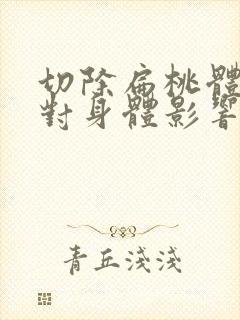 切除扁桃體
對身體影響
青丘淺淺